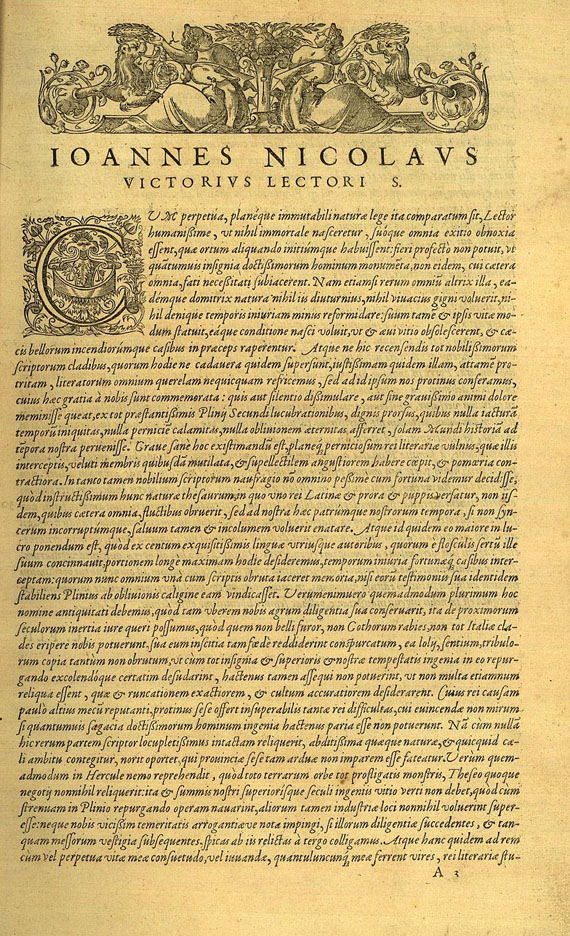 IOANNES NICOLAVS
VICTORIVS LECTORI S.
CVM perpetua, planéque immutabili naturæ lege ita comparatum sit, Lector
humanißime, vt nihil immortale nasceretur, suóque omnia exitio obnoxia
essent, quæ ortum aliquando initiumque habuissent: fieri profecto non potuit, vt
quãtumuis insignia doctißimorum hominum monumẽta, non eidem, cui cætera
omnia, fati necessitati subiacerent. Nam etiamsi rerum omniũ altrix illa, ea-
démque domitrix natura nihil iis diuturnius, nihil viuacius gigni voluerit, ni-
hil denique temporis iniuriam minus reformidare: suum tamẽ & ipsis vitæ mo-
dum statuit, eáque conditione nasci voluit, vt & æui vitio obsolescerent, & cæ-
cis bellorum incendiorúmque casibus in præceps raperentur. Atque ne hic recensendis tot nobilißimorum
scriptorum cladibus, quorum hodie ne cadauera quidem supersunt, iustißimam quidem illam, attamẽ pro-
tritam, literatorum omnium querelam nequicquam refricemus, sed ad id ipsum nos protinus conferamus,
cuius hæc gratia à nobis sunt commemorata: quis aut silentio dißimulare, aut sine grauißimo animi dolore
meminisse queat, ex tot præstantißimis Plinij Secundi lucubrationibus, dignis prorsus, quibus nulla iacturã
temporũ iniquitas, nulla perniciẽ calamitas, nulla obliuionem æternitas afferret, solam Mundi historiã ad
tẽpora nostra peruenisse? Graue sanè hoc existimandũ est, planeq; perniciosum rei literariæ vulnus, quæ illis
interceptis, veluti membris quibusdã mutilata, & supellectilem angustiorem habere cœpit, & pomœria con-
tractiora. In tanto tamen nobilium scriptorum naufragio no omnino peßime cum fortuna videmur decidisse,
quòd instructißimum hunc naturæ thesaurum, in quo vno rei Latinæ & prora & puppis versatur, non iis-
dem, quibus cætera omnia, fluctibus obruerit, sed ad nostra hæc patrúmque nostrorum tempora, si non syn-
cerum incorruptúmque, saluum tamen & incolumem voluerit enatare. Atque id quidem eo maiore in lu-
cro ponendum est, quòd ex centum exquisitißimis linguæ vtriusque autoribus, quorum è flosculis sertũ ille
suum concinnauit, portionem longe maximam hodie desideremus, temporum iniuria fortunæq; casibus inter-
ceptam: quorum nunc omnium vnà cum scriptis obruta iaceret memoria, nisi eorũ testimoniis sua identidem
stabiliens Plinius ab obliuionis caligine eam vindicasset. Verumenimuero quemadmodum plurimum hoc
nomine antiquitati debemus, quòd tam vberem nobis agrum diligentia sua conseruarit, ita de proximorum
seculorum inertia iure queri possumus, quòd quem non belli furor, non Gothorum rabies, non tot Italiæ cla-
des eripere nobis potuerunt, sua eum inscitia tam fœdè reddiderint conspurcatum, ea lolij, sentium, tribulo-
rum copia tantùm non obrutum, vt cùm tot insignia & superioris & nostræ tempestatis ingenia in eo repur-
gando excolendóque certatim desudarint, hactenus tamen assequi non potuerint, vt non multa etiamnum
reliqua essent, quæ & runcationem exactiorem, & cultum accuratiorem desiderarent. Cuius rei causam
paulò altius mecũ reputanti, protinus sese offert insuperabilis tantæ rei difficultas, cui euincendæ non mirum
si quantumuis sagacia doctißimorum hominum ingenia hactenus paria esse non potuerunt. Nã cum nullã
hic rerum partem scriptor locupletißimus intactam reliquerit, abditißima quæque naturæ, & quicquid cæ-
li ambitu contegitur, norit oportet, qui prouinciæ sese tam arduæ non imparem esse fateatur. Verùm quem-
admodum in Hercule nemo reprehendit, quòd toto terrarum orbe tot profligatis monstris, Theseo quoque
negotij nonnihil reliquerit: ita & summis nostri superiorísque seculi ingeniis vitio verti non debet, quòd cùm
strenuam in Plinio repurgando operam nauarint, aliorum tamen industriæ loci nonnihil voluerint super-
esse: neque nobis vicißim temeritatis arrogantiæve nota impingi, si illorum diligentiæ succedentes, & tan-
quam messorum vestigia subsequentes, spicas ab iis relictas à tergo colligamus. Atque hanc quidem ad rem
cùm vel perpetua vitæ meæ consuetudo, vel iuuandæ, quantuluncunq; meæ ferrent vires, rei literariæ stu-
A 3